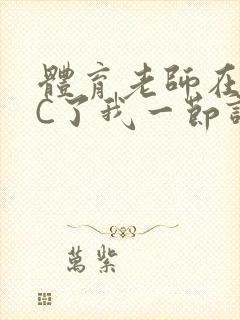 體育老師在
C了我一節
萬紫